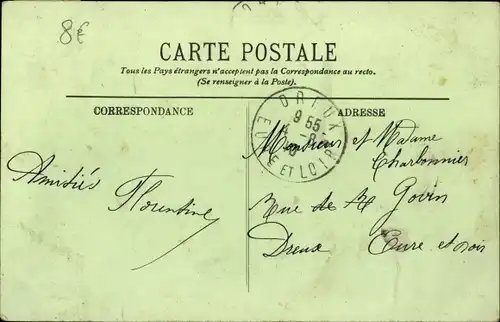 8€
CARTE POSTALE
Tous les Pays étrangers n'acceptent pas la Correspondance au recto.
(Se renseigner à la Poste).
CORRESPONDANCE
ADRESSE
DREUX
9 55
EURE ET LOIR
Amitiés
Florentine
Monsieur et Madame
Charbonnier
Rue de
Dreux Eure et Loir